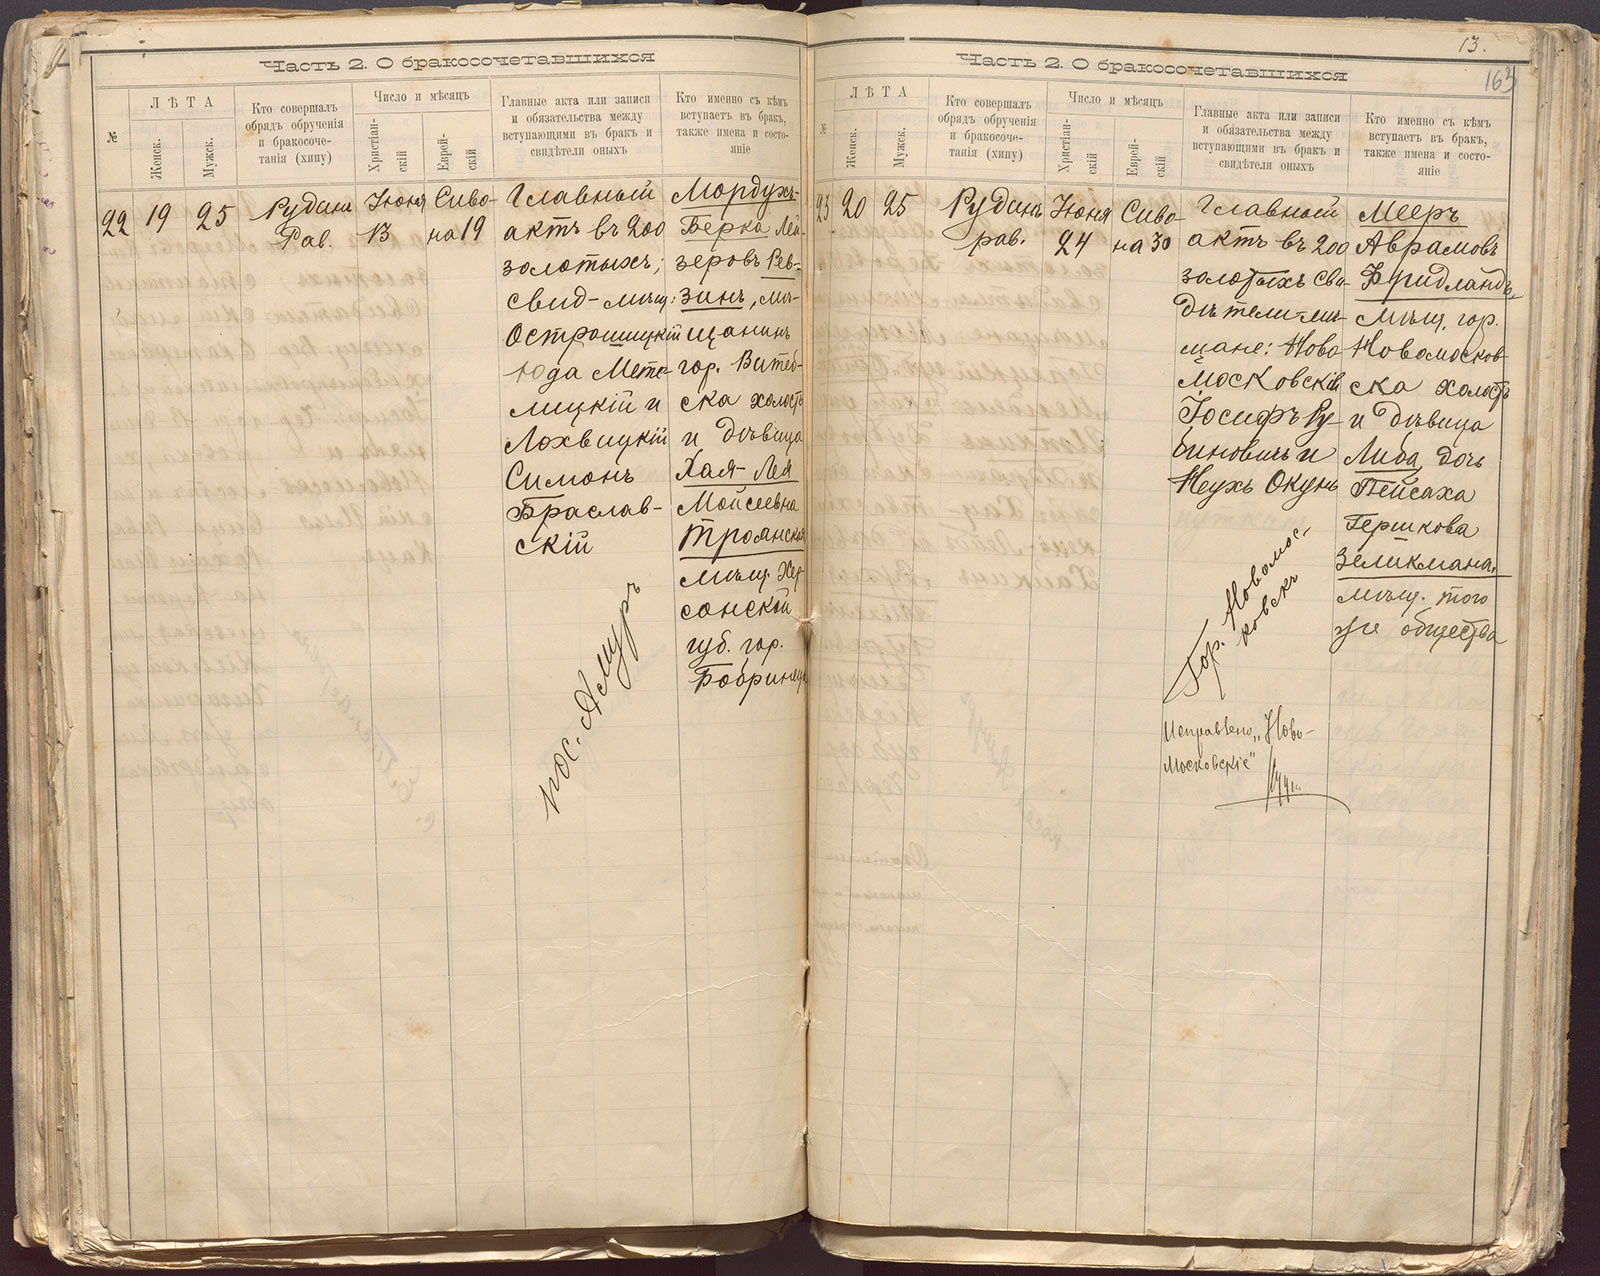 Часть 2. О бракосочетавшихся
№
ЛѢТА
Женск.
Мужск.
Кто совершалъ
обрядъ обрученія
и бракосоче-
танія (хипу)
Число и мѣсяцъ
Христіан-
скій
Еврей-
скій
Главные акта или записи
и обязательства между
вступающими въ бракъ и
свидѣтели оныхъ
Кто именно съ кѣмъ
вступаетъ въ бракъ,
также имена и состо-
яніе
22
19
25
Рудинъ
Рав.
Іюня
13
Сиво-
на 19
Главный
актъ въ 200
золотыхъ;
свид-мѣщ:
Острошицкій
Юда
лицкій и
Лохвицкій
Симонъ
Браслав-
скій
пос. Амуръ
Мордухъ-
Берка Лей-
зеровъ Рев-
зинъ, мѣ-
щанинъ
гор. Витеб-
ска холостъ
и дѣвица
Хая-Лея
Мойсеевна
Троянская
мѣщ. Хер-
сонской
губ. гор.
Бобринца
13.
163
Часть 2. О бракосочетавшихся
№
ЛѢТА
Женск.
Мужск.
Кто совершалъ
обрядъ обрученія
и бракосоче-
танія (хипу)
Число и мѣсяцъ
Христіан-
скій
Еврей-
скій
Главные акта или записи
и обязательства между
вступающими въ бракъ и
свидѣтели оныхъ
Кто именно съ кѣмъ
вступаетъ въ бракъ,
также имена и состо-
яніе
23
20
25
Рудинъ
рав.
Іюня
24
Сиво-
на 30
Главный
актъ въ 200
золотыхъ сви-
дѣтели-мѣ-
щане: Ново
Московскій
Іосифъ Ру-
биновичъ и
Неухъ Окунь
Гор. Новомос-
ковскъ
Исправлено „Ново-
Московскіе“
Мееръ
Аврамовъ
Фридландъ,
Мѣщ. гор.
Новомосков-
ска холостъ
и дѣвица
Либа, дочь
Пейсаха
Гершкова
Зеликмана,
мѣщ. того
же общества